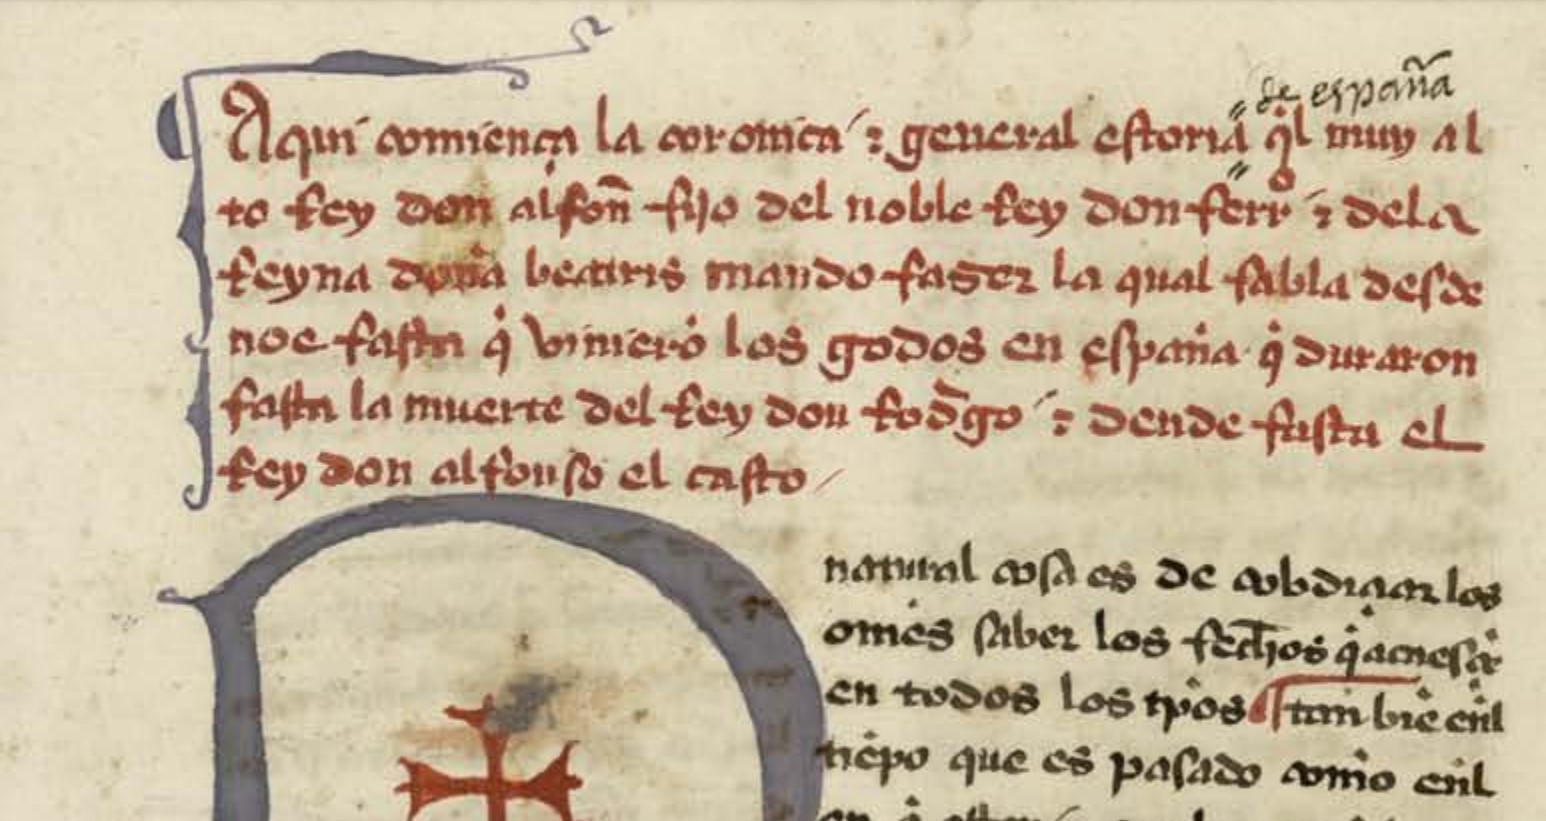 de españa
Aqui comiença la coronica ⁊ general estoria q̃l muy al
to rey don alfon̄ fijo del noble rey don ferr̄o ⁊ dela
reyna doña beatris mando faser la qual fabla desde
noe fasta q̃ vinierō los godos en españa q̃ duraron
fasta la muerte del rey don rod̄go ⁊ dende fasta el
rey don alfonso el casto
natural cosa es de cobdiçiar los
om̄es saber los fechos q̃
en todos los tp̄os tan biē enl
tiēpo que es pasado com̄o enl